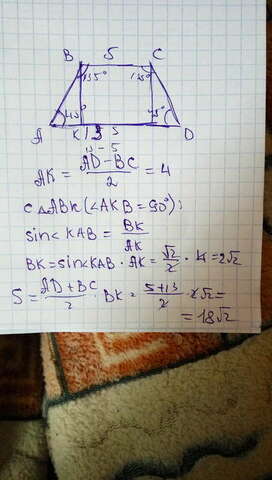 B 5 C
135° 135°
45° 45°
A K 13 5 D
13 - 5
AK = AD-BC / 2 = 4
С △ABK (∠AKB = 90°):
sin∠KAB = BK / AK
BK = sin∠KAB · AK = √2/2 · 4 = 2√2
S = AD+BC / 2 · BK = 5+13 / 2 · 2√2 =
= 18√2